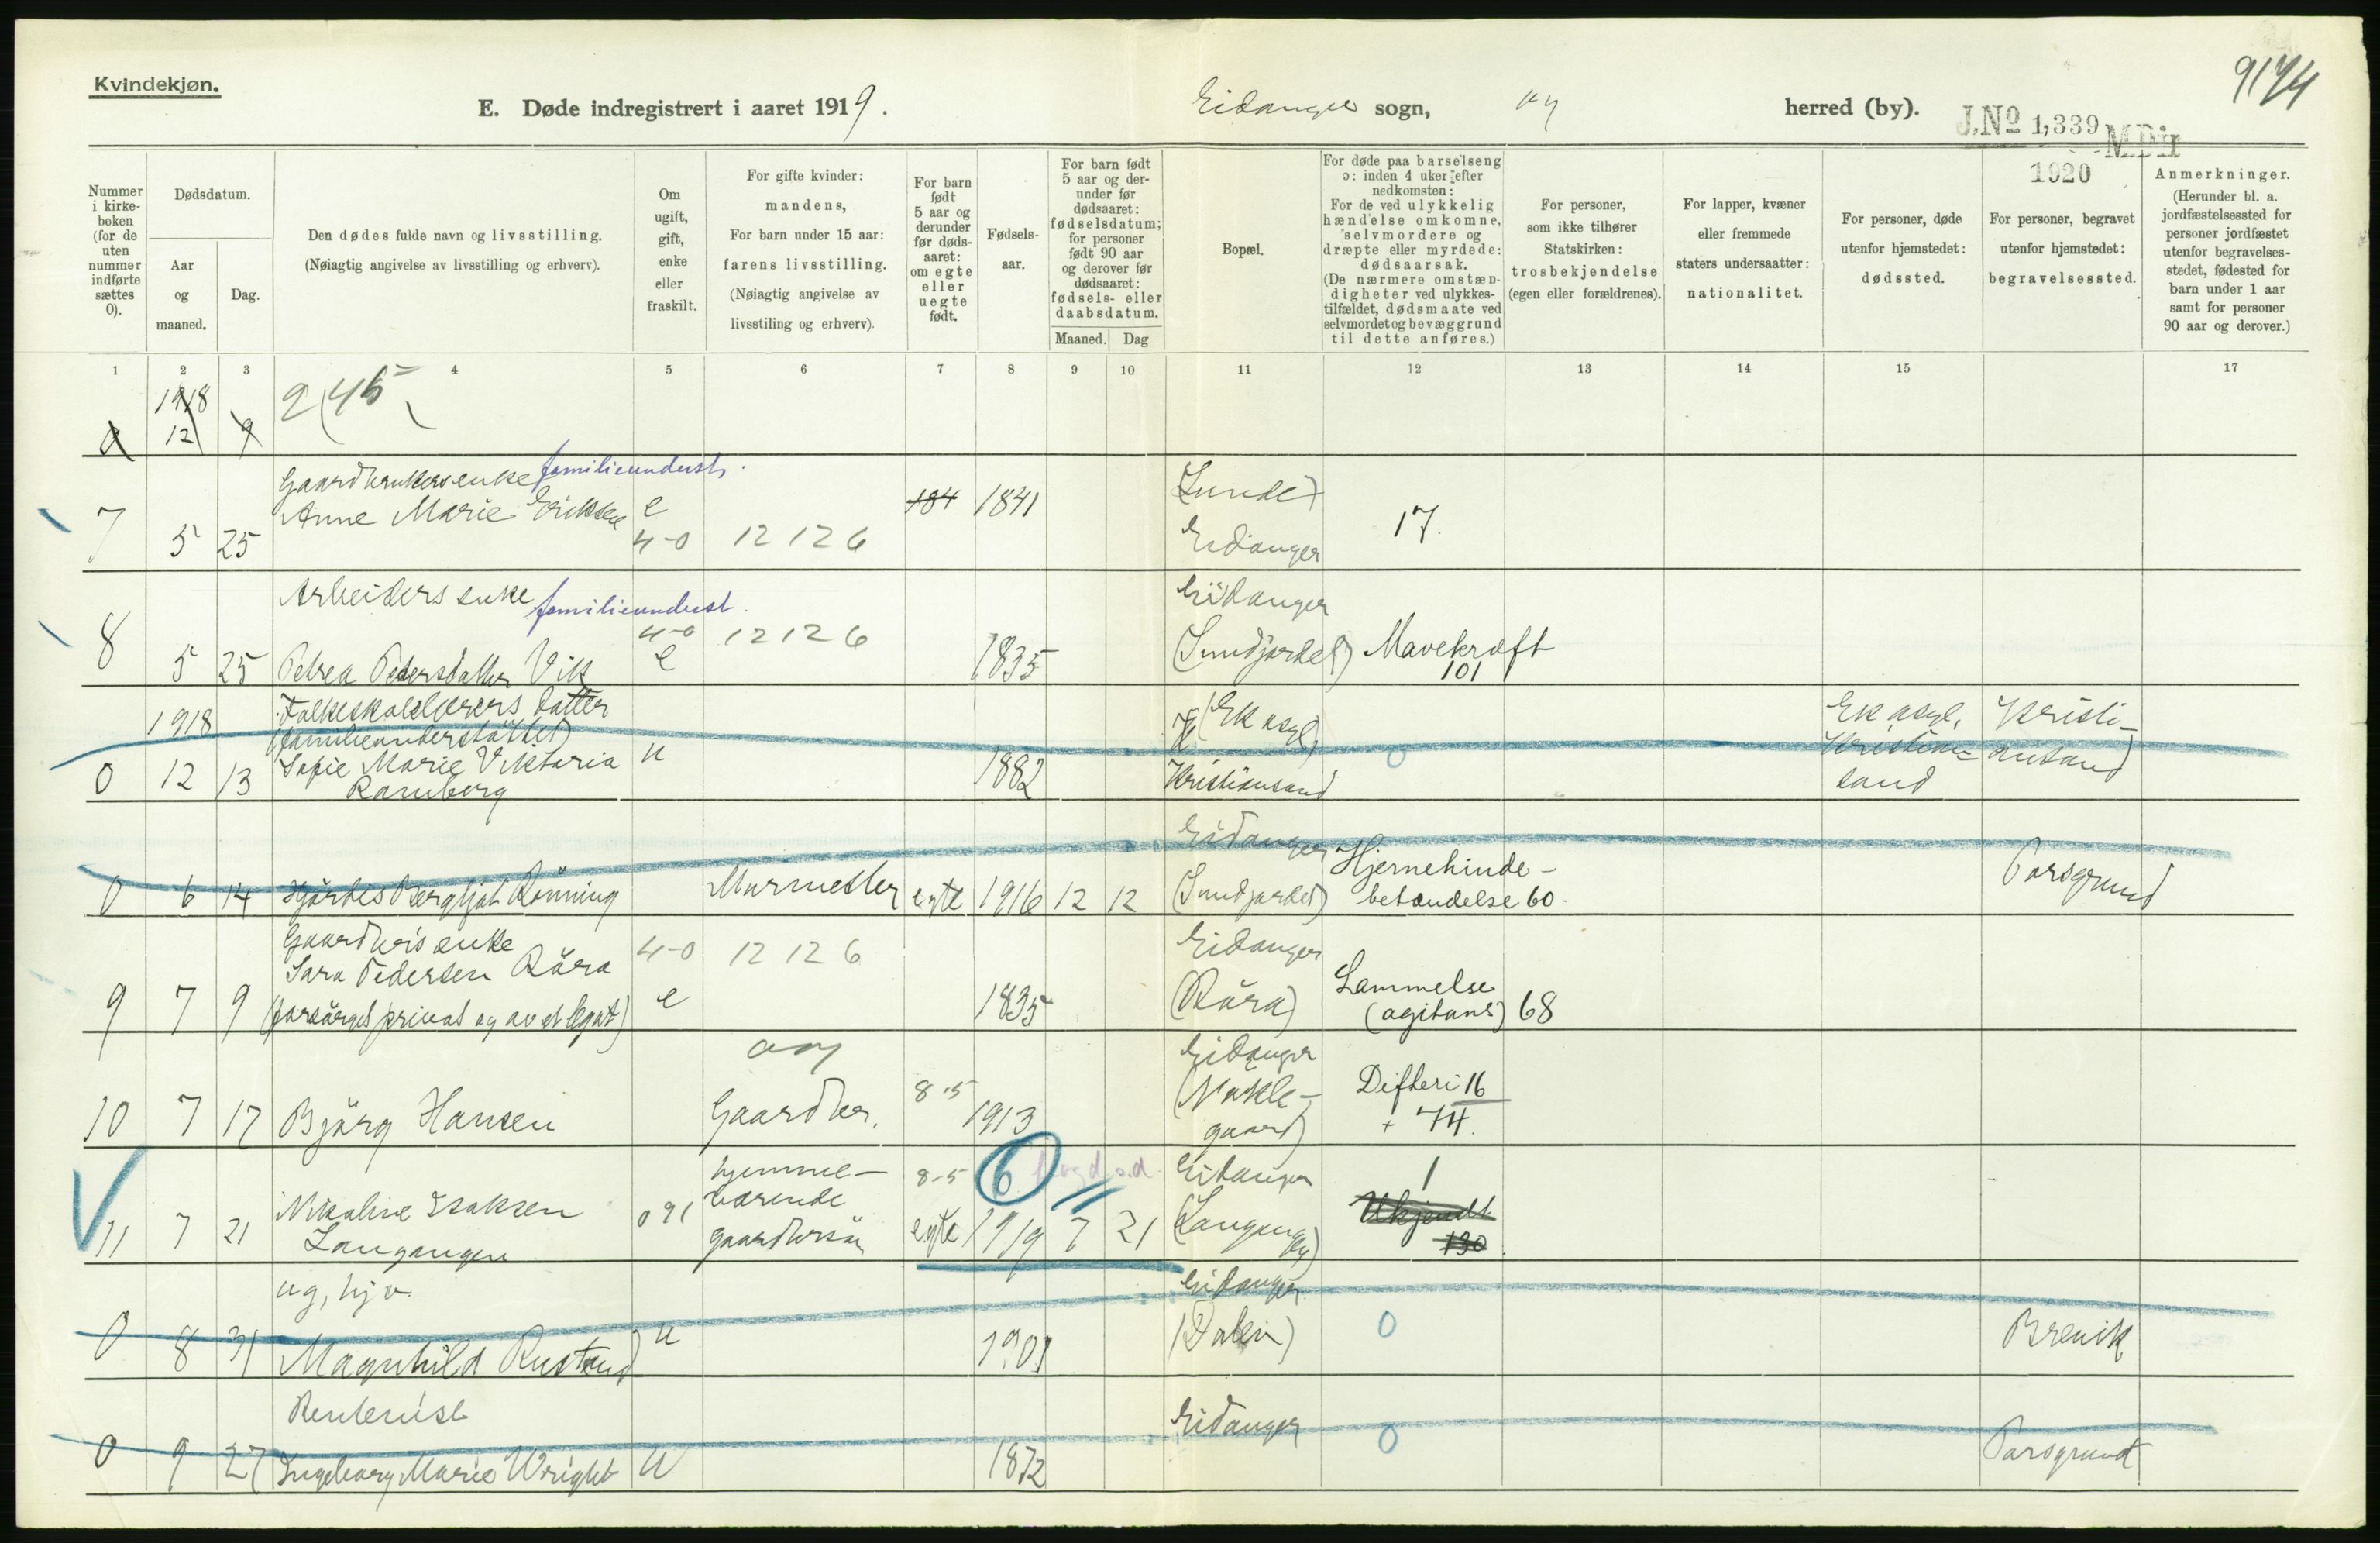 Kvindekjøn.
9174
E. Døde indregistrert i aaret 1919. Eidanger sogn, herred (by).
J.No 1,339 M.Dir
1920
Nummer i kirkeboken (for de uten nummer indførte sættes 0).
Dødsdatum.
Aar og maaned.
Dag.
Den dødes fulde navn og livsstilling.
(Nøiagtig angivelse av livsstilling og erhverv).
Om ugift, gift, enke eller fraskilt.
For gifte kvinder: mandens,
For barn under 15 aar: farens livsstilling.
(Nøiagtig angivelse av livsstiling og erhverv).
For barn født 5 aar og derunder før dødsaaret: om egte eller uegte født.
Fødselsaar.
For barn født 5 aar og derunder før dødsaaret: fødselsdatum; for personer født 90 aar og derover før dødsaaret: fødsels- eller daabsdatum.
Maaned. Dag
Bopæl.
For døde paa barselseng ɔ: inden 4 uker efter nedkomsten:
For de ved ulykkelig hændelse omkomne, selvmordere og dræpte eller myrdede: dødsaarsak.
(De nærmere omstændigheter ved ulykkestilfældet, dødsmaate ved selvmordet og bevæggrund til dette anføres.)
For personer, som ikke tilhører Statskirken: trosbekjendelse (egen eller forældrenes).
For lapper, kvæner eller fremmede staters undersaatter: nationalitet.
For personer, døde utenfor hjemstedet: dødssted.
For personer, begravet utenfor hjemstedet: begravelsessted.
Anmerkninger.
(Herunder bl. a. jordfæstelsessted for personer jordfæstet utenfor begravelsesstedet, fødested for barn under 1 aar samt for personer 90 aar og derover.)
1 2 3 4 5 6 7 8 9 10 11 12 13 14 15 17
1918 245
0 12 9
Gaardbrukersenke familieunderst.
Anne Marie Eriksen e 184 1841 (Lunde)
7 5 25 4-0 12 12 6 Eidanger 17.
Arbeiders enke familieunderst. Eidanger
4-0 12 12 6
8 5 25 Petrea Pedersdatter Vik e 1835 (Sundjordet) Mavekræft
101
1918 Folkeskolelærers datter (Ek asyl) Ek asyl, Kristi-
(familieunderstøttet) Kristian- ansand
0 12 13 Sofie Marie Viktoria u 1882 Kristiansand 0 sand
Ramberg
Eidanger Hjernehinde-
0 6 14 Hjördis Bergljot Rönning Murmester egte 1916 12 12 (Sundjordet) betændelse 60. Porsgrund
Gaardbr's enke 4-0 12 12 6 Eidanger
Sara Pedersen Röra Lammelse
9 7 9 (forsörget privat og av et legat) e 1835 (Röra) (agitans) 68
Eidanger
8-5 (Nakle- Difteri 16
10 7 17 Björg Hansen Gaardbr. 1913 gaard) + 74.
hjemme- 8-5 6 Eidanger 1
Nikoline Isaksen 091 værende (Langangen) Ukjendt
11 7 21 Langangen gaardbrsön egte 1919 7 21 130
ug, hjv. Eidanger
0 8 31 Magnhild Rustand u 1901 (Dalen) 0 Brevik
Renterist Eidanger
0 9 27 Ingeborg Marie Wright u 1872 0 Porsgrund